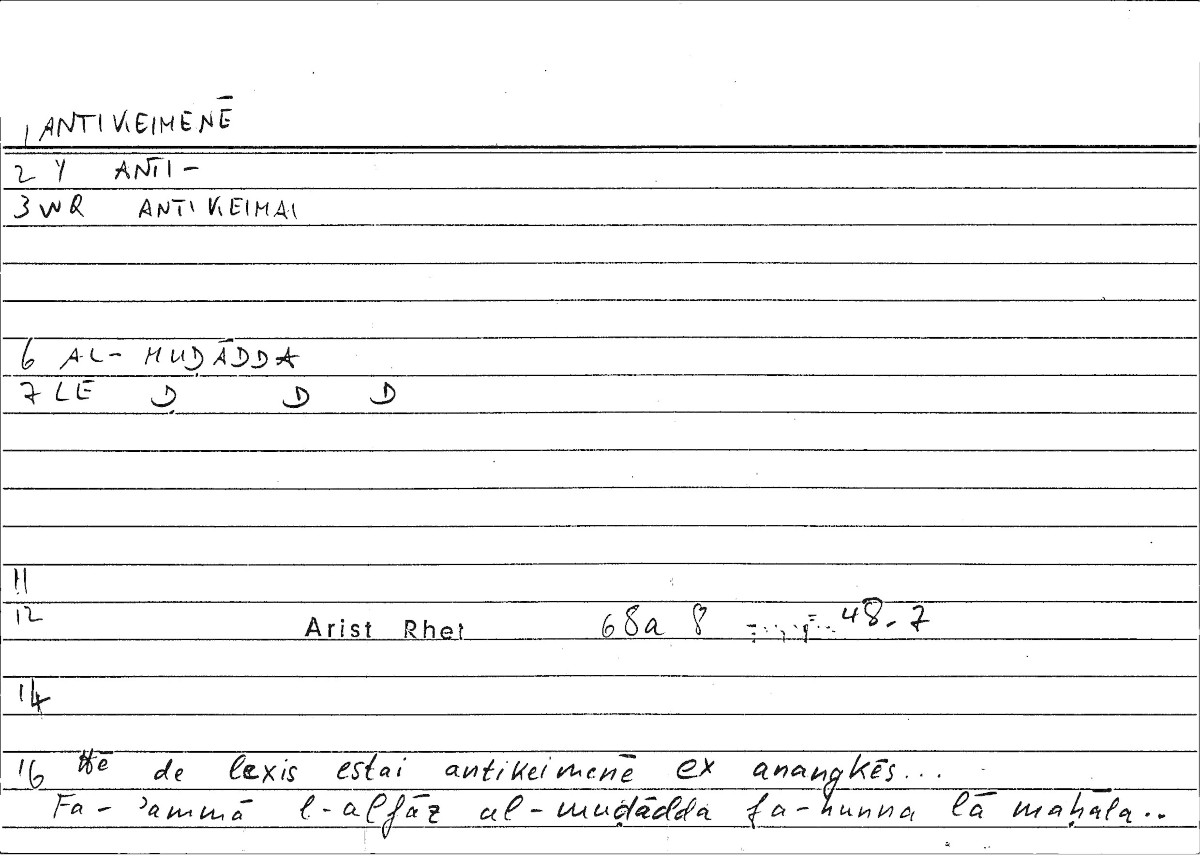 1 ANTIKEIMENĒ
2 Y ANTI-
3 WR ANTIKEIMAI
6 AL- MUḌĀDDA
7 LE Ḍ D D
11
12 Arist Rhet 68a 8 48.7
14
16 Hē de lexis estai antikeimenē ex anangkēs...
Fa-'ammā l-alfāz al-muḍādda fa-hunna lā maḥāla..